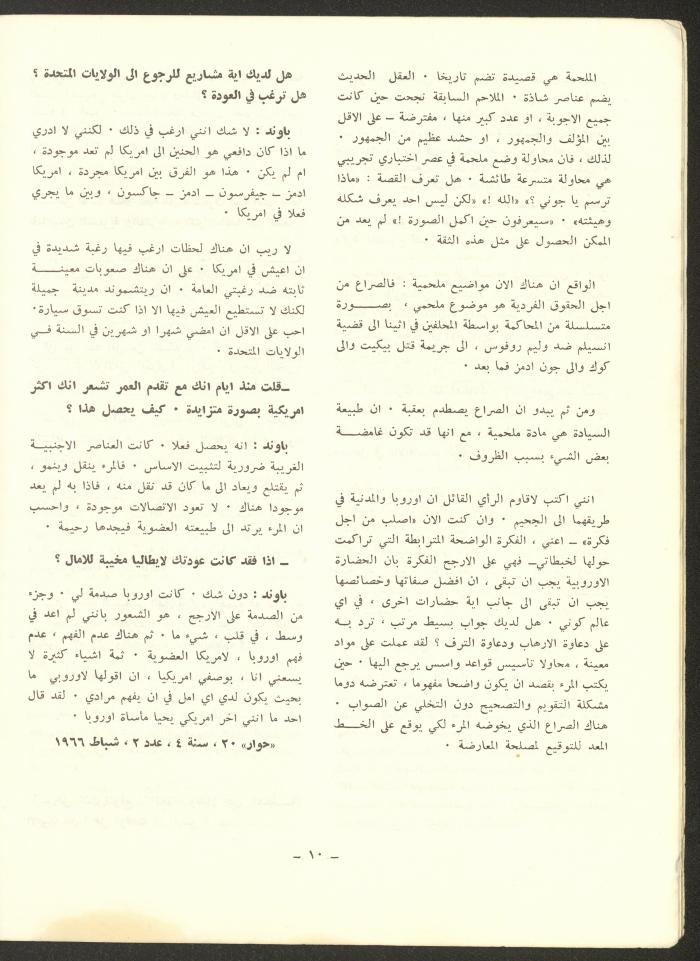 الملحمة هي قصيدة تضم تاريخا ٠ العقل الحديث
يضم عناصر شاذة ٠ الملاحم السابقة نجحت حين كانت
جميع الاجوبة ، او عدد كبير منها ، مفترضة ــ على الاقل
بين المؤلف والجمهور ، او حشد عظيم من الجمهور ٠
لذلك ، فان محاولة وضع ملحمة في عصر اختباري تجريبي
هي محاولة متسرعة طائشة ٠ هل تعرف القصة : «ماذا
ترسم يا جوني ؟» «الله !» «لكن ليس احد يعرف شكله
وهيئته» ٠ «سيعرفون حين اكمل الصورة !» لم يعد من
الممكن الحصول على مثل هذه الثقة ٠
الواقع ان هناك الان مواضيع ملحمية : فالصراع من
اجل الحقوق الفردية هو موضوع ملحمي ، بصــورة
متسلسلة من المحاكمة بواسطة المحلفين في اثينا الى قضية
انسيلم ضد وليم روفوس ، الى جريمة قتل بيكيت والى
كوك والى جون ادمز فما بعد ٠
ومن ثم يبدو ان الصراع يصطدم بعقبة ٠ ان طبيعة
السيادة هي مادة ملحمية ، مع انها قد تكون غامضــة
بعض الشيء بسبب الظروف ٠
انني اكتب لاقاوم الرأي القائل ان اوروبا والمدنية في
طريقهما الى الجحيم ٠ وان كنت الان «اصلب من اجل
فكرة» ــ اعني ، الفكرة الواضحة المترابطة التي تراكمت
حولها لخبطاتي ــ فهي على الارجح الفكرة بان الحضارة
الاوروبية يجب ان تبقى ، ان افضل صفاتها وخصائصها
يجب ان تبقى الى جانب اية حضارات اخرى ، في اي
عالم كوني ٠ هل لديك جواب بسيط مرتب ، ترد بــه
على دعاوة الارهاب ودعاوة الترف ؟ لقد عملت على مواد
معينة ، محاولا تأسيس قواعد واسس يرجع اليها ٠ حين
يكتب المرء بقصد ان يكون واضحا مفهوما ، تعترضه دوما
مشكلة التقويم والتصحيح دون التخلي عن الصواب ٠
هناك الصراع الذي يخوضه المرء لكي يوقع على الخــط
المعد للتوقيع لمصلحة المعارضة ٠
هل لديك اية مشاريع للرجوع الى الولايات المتحدة ؟
هل ترغب في العودة ؟
باوند : لا شك انني ارغب في ذلك ٠ لكنني لا ادري
ما اذا كان دافعي هو الحنين الى امريكا لم تعد موجودة ،
ام لم يكن ٠ هذا هو الفرق بين امريكا مجردة ، امريكا
ادمز ــ جيفرسون ــ ادمز ــ جاكسون ، وبين ما يجري
فعلا في امريكا ٠
لا ريب ان هناك لحظات ارغب فيها رغبة شديدة في
ان اعيش في امريكا ٠ على ان هناك صعوبات معينــة
ثابته ضد رغبتي العامة ٠ ان ريتشموند مدينة جميلة
لكنك لا تستطيع العيش فيها الا اذا كنت تسوق سيارة٠
احب على الاقل ان امضي شهرا او شهرين في السنة فــي
الولايات المتحدة ٠
ــقلت منذ ايام انك مع تقدم العمر تشعر انك اكثر
امريكية بصورة متزايدة ٠ كيف يحصل هذا ؟
باوند : انه يحصل فعلا ٠ كانت العناصر الاجنبيــة
الغريبة ضرورية لتثبيت الاساس ٠ فالمرء ينقل وينمو ،
ثم يقتلع ويعاد الى ما كان قد نقل منه ، فاذا به لم يعد
موجودا هناك ٠ لا تعود الاتصالات موجودة ، واحسب
ان المرء يرتد الى طبيعته العضوية فيجدها رحيمة ٠
ــ اذا فقد كانت عودتك لايطاليا مخيبة للامال ؟
باوند : دون شك ٠ كانت اوروبا صدمة لي ٠ وجزء
من الصدمة على الارجح ، هو الشعور بانني لم اعد في
وسط ، في قلب ، شيء ما ٠ ثم هناك عدم الفهم ، عدم
فهم اوروبا ، لامريكا العضوية ٠ ثمة اشياء كثيرة لا
يسعني انا ، بوصفي امريكيا ، ان اقولها لاوروبي ما
بحيث يكون لدي اي امل في ان يفهم مرادي ٠ لقد قال
احد ما انني اخر امريكي يحيا مأساة اوروبا ٠
«حوار» ٢٠ ، سنة ٤ ، عدد ٢ ، شباط ١٩٦٦
ــ ١٠ ــ